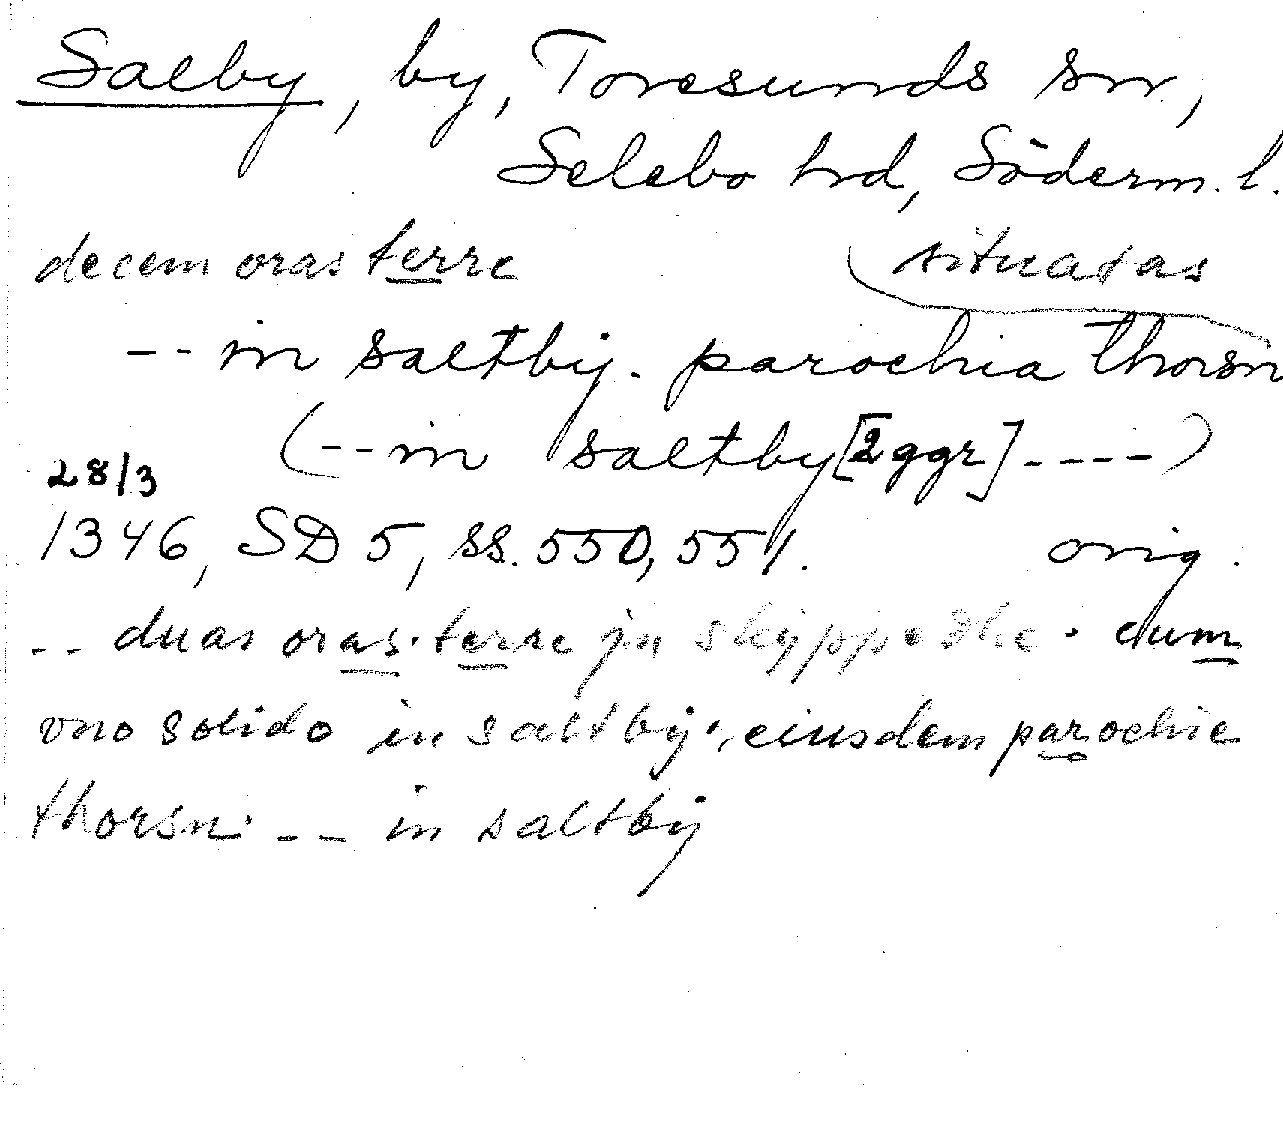 Salby, by, Toresunds sn,
Selebo hd, Söderm. l.
decem oras terre situatas
-- in saltbij. parochia thorsn
(-- in saltby [2 ggr] ----)
28/3
1346, SD 5, ss. 550, 551. orig.
-- duas oras. terre jn skijppedhe. cum
vno solido in saltbij., eiusdem parochie
thorsn. -- in saltbij